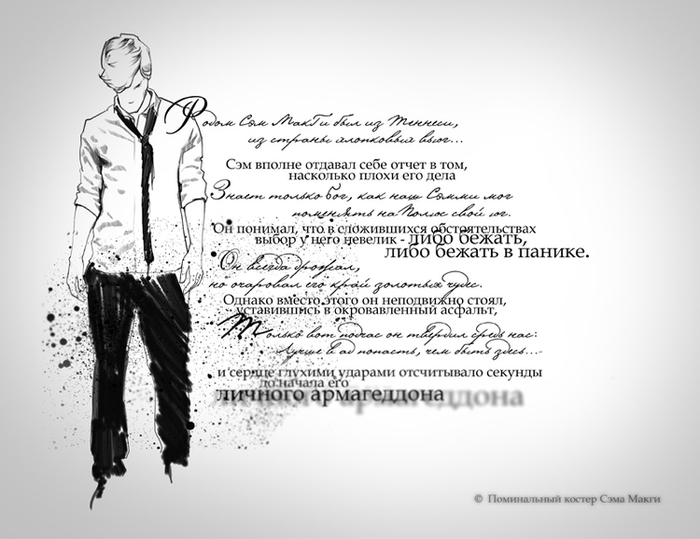 Родом Сэм МакГи был из Теннеси,
из страны хлопковых вьюг...
Сэм вполне отдавал себе отчет в том,
насколько плохи его дела
Знает только бог, как наш Сэмми мог
поменять на Полюс свой юг.
Он понимал, что в сложившихся обстоятельствах
выбор у него невелик - либо бежать,
либо бежать в панике.
Он всегда дрожал,
но очаровал его край золотых чудес.
Однако вместо этого он неподвижно стоял,
уставившись в окровавленный асфальт,
Только вот подчас он твердил средь нас:
Лучше в ад попасть, чем быть здесь...
и сердце глухими ударами отсчитывало секунды
до начала его
личного армагеддона
© Поминальный костер Сэма Макги